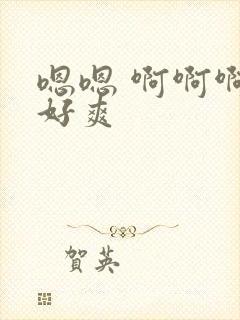 嗯嗯 啊啊啊
好爽
賀英